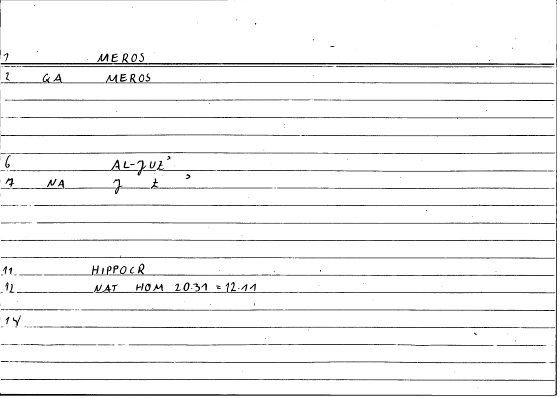 1 MEROS
2 QA MEROS
6 AL-JUZ'
7 NA J Z '
11 HIPPOCR
12 NAT HOM 20.31 = 12.11
14